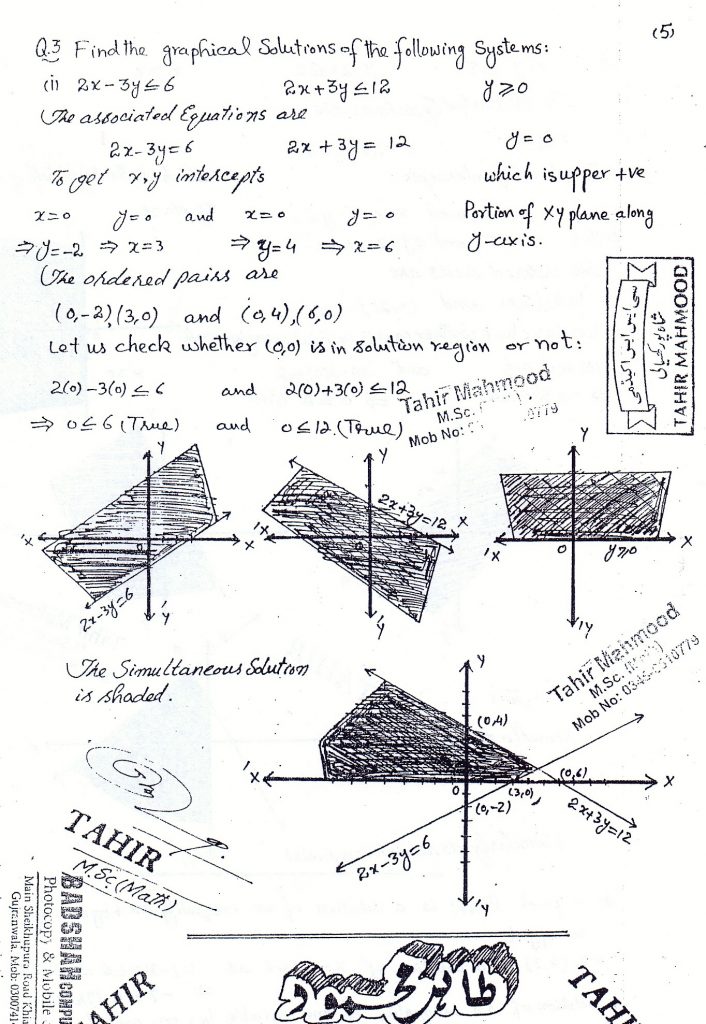 (5)
Q.3 Find the graphical Solutions of the following Systems:
(i) 2x-3y≤6 2x+3y≤12 y≥0
The associated Equations are
2x-3y=6 2x+3y=12 y=0
To get x,y intercepts which is upper +ve
x=0 y=0 and x=0 y=0 Portion of XY plane along
⇒y=-2 ⇒x=3 ⇒y=4 ⇒x=6 y-axis.
The ordered pairs are
(0,-2),(3,0) and (0,4),(6,0)
Let us check whether (0,0) is in solution region or not:
2(0)-3(0)≤6 and 2(0)+3(0)≤12
⇒ 0≤6 (True) and 0≤12.(True)
TAHIR MAHMOOD
Tahir Mahmood
M.Sc.
Mob No: 0779
Y
'X X
0
2x-3y=6
'Y
Y
2x+3y=12
'X X
0
'Y
Y
'X X
0 y≥0
'Y
The Simultaneous Solution
is shaded.
Tahir Mahmood
M.Sc.
Mob No:
Y
(0,4)
'X X
0 (3,0) (0,6)
(0,-2)
2x+3y=12
2x-3y=6
'Y
TAHIR
M.Sc.(Math)
BADSHAH COMPU
Photocopy & Mobile
Main Sheikhupura Road Khia
Gujranwala. Mob: 0300741
AHIR
طاہر محمود
TAH